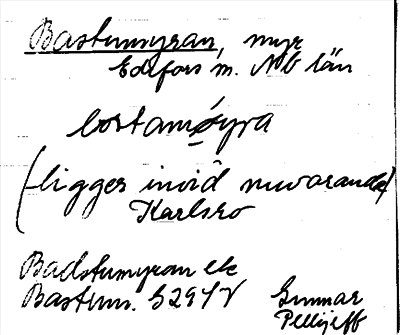 Bastumyran, myr
Edefors sn. Nb län
bastamøyra
(ligger invid nuvarande)
Karlsro
Badstumyran ek
Bastum. S29SV
Gunnar
Pellijeff